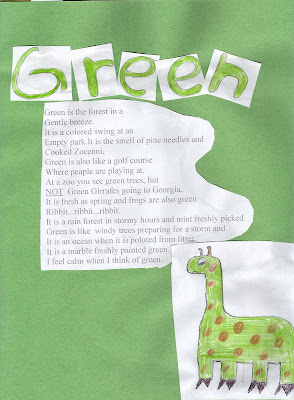 Green
Green is the forest in a
Gentle breeze.
It is a colored swing at an
Empty park.It is the smell of pine needles and
Cooked Zocenni.
Green is also like a golf course
Where peaple are playing at.
At a zoo you see green trees, but
NOT Green Girrafes going to Georgia.
It is fresh as spring and frogs are also green
Ribbit...ribbit...ribbit.
It is a rain forest in stormy hours and mint freshly picked.
Green is like windy trees preparing for a storm and
It is an ocean when it is poluted from litter.
It is a marble freshly painted green.
I feel calm when I think of green.